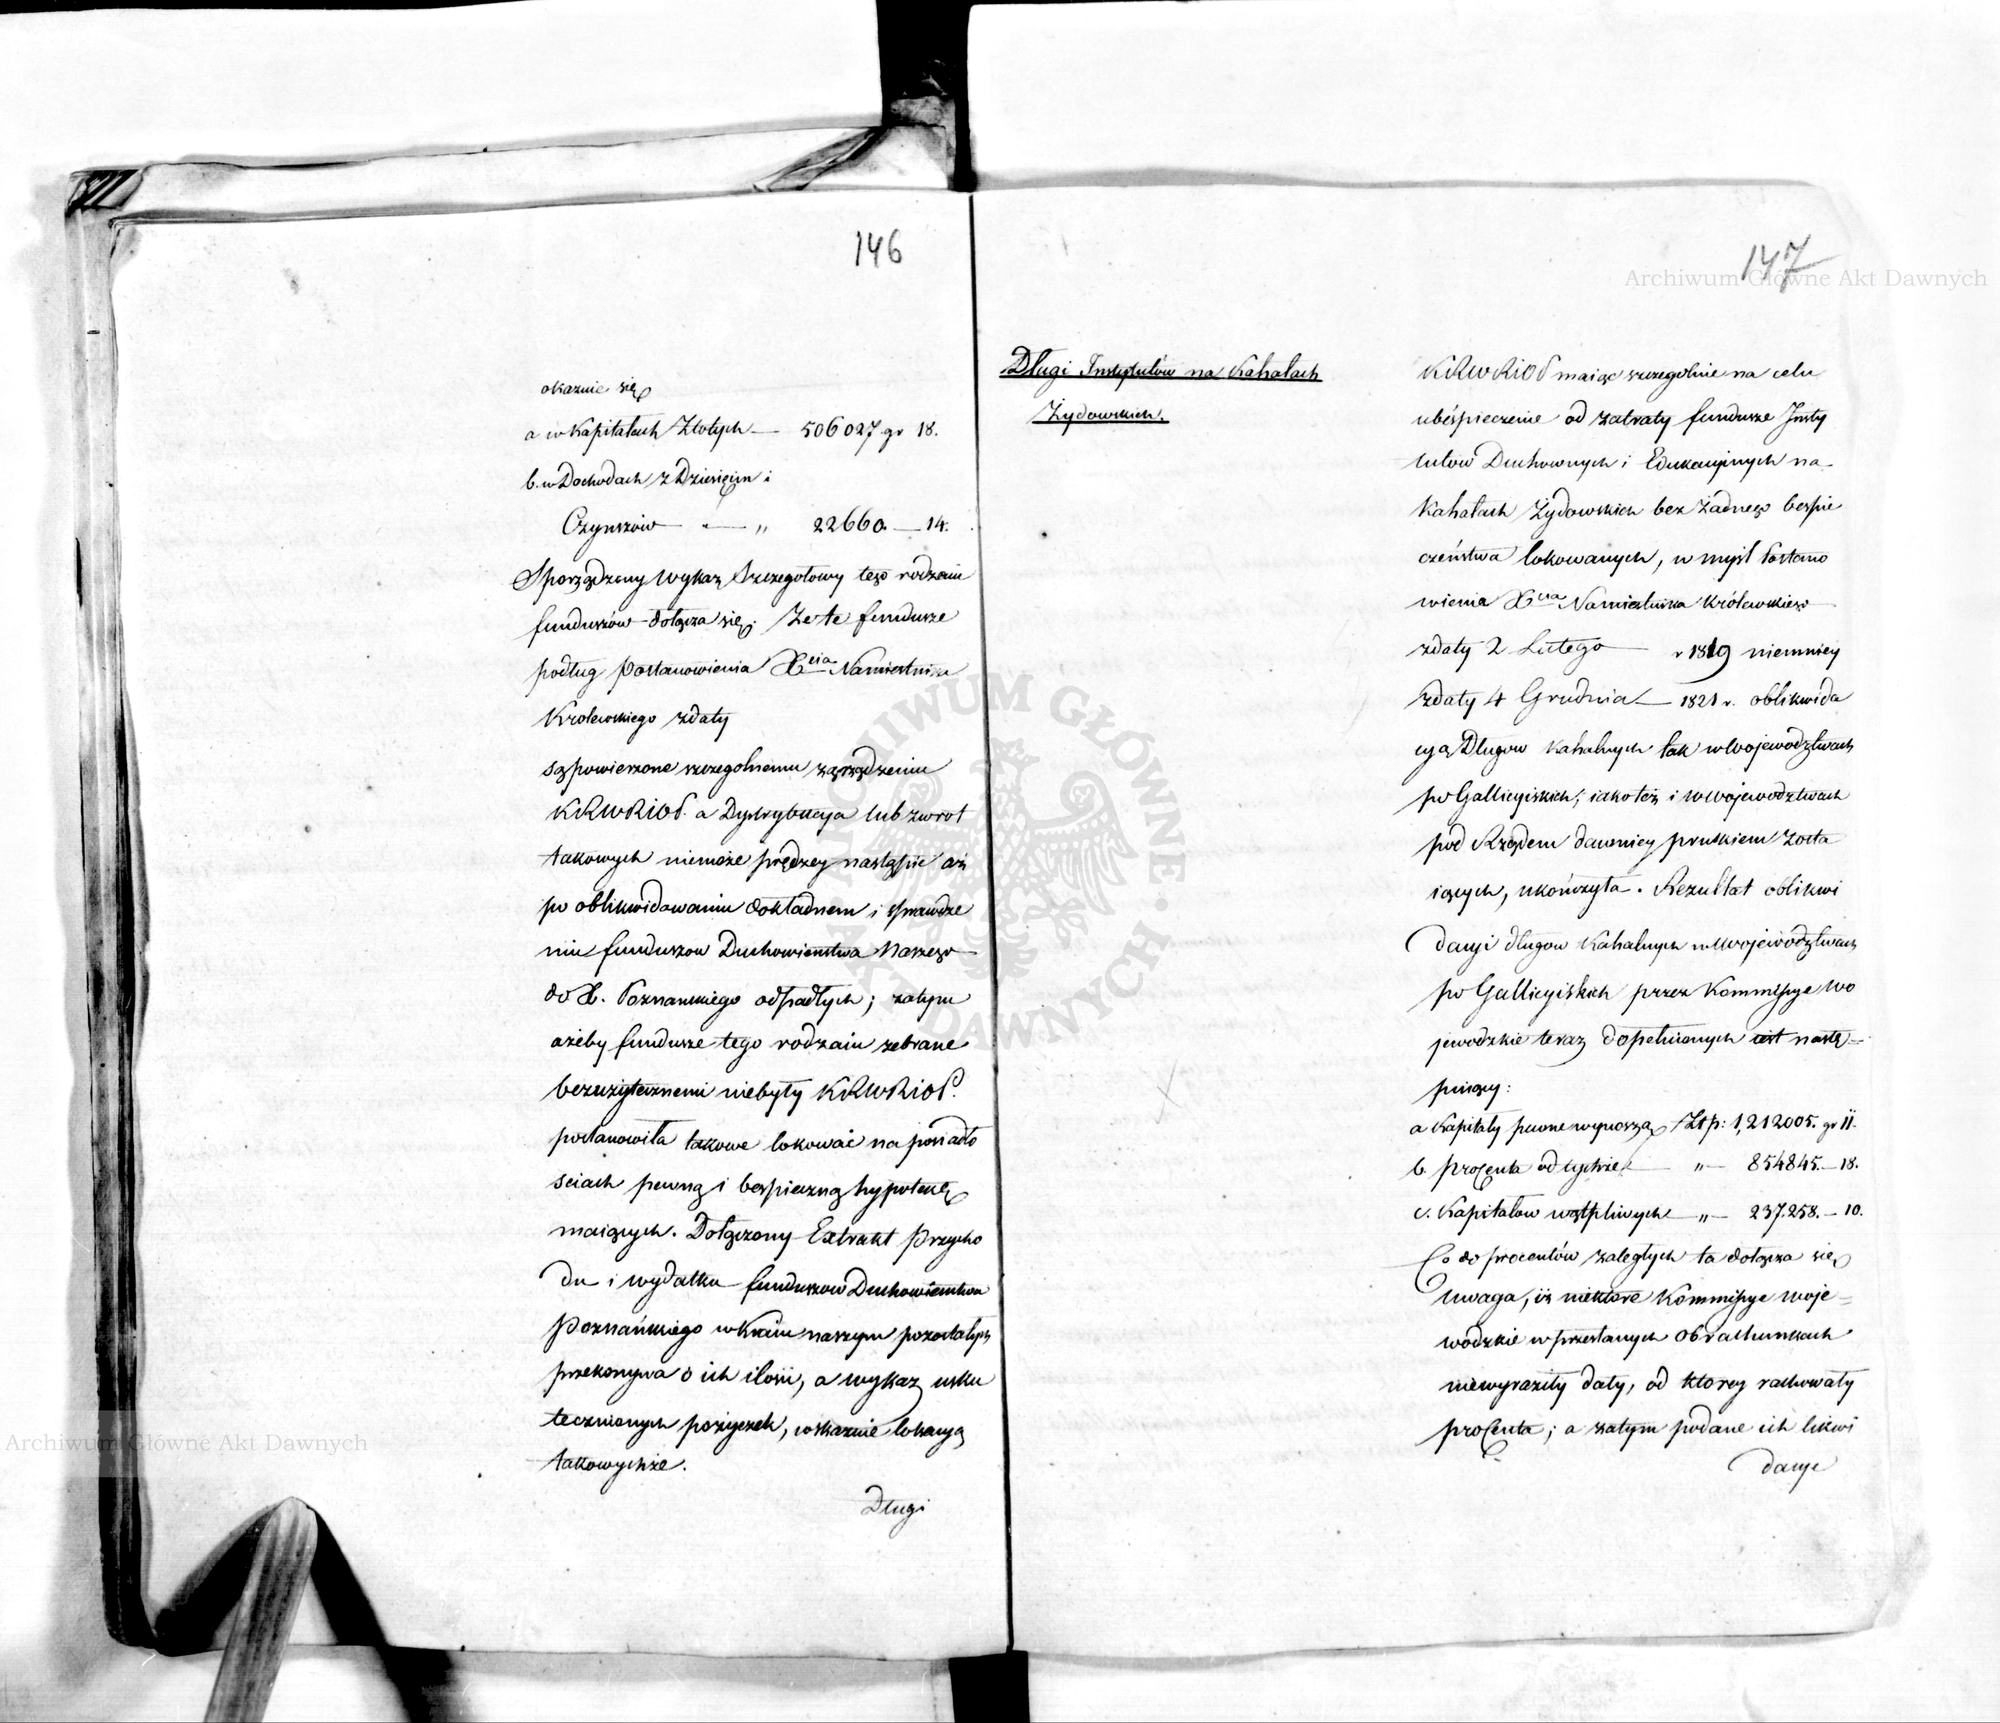 146
okazuie się
a w Kapitałach Złotych — 506027 gr 18.
b. w Dochodach z Dziesięcin i
Czynszów — „ 22660. — 14.
Sporządzony wykaz szczegółowy tego rodzaiu
funduszów dołącza się. Że te fundusze
podług Postanowienia Xcia Namiestnika
Królewskiego z daty
są powierzone szczegolnemu zarządzeniu
KRWRiOP. a Dystrybucya lub zwrot
takowych niemoże prędzey nastąpić aż
po oblikwidowaniu dokładnem i sprawdze
niu funduszow Duchowieństwa Naszego
do X. Poznanskiego odpadłych; zatym
ażeby fundusze tego rodzaiu zebrane
bezużytecznemi niebyły KRWRiOP.
postanowiła takowe lokować na posiadło
sciach pewną i bespieczną hypotekę
maiących. Dołączony Extrakt Przycho
du i wydatku funduszow Duchowieństwa
Poznańskiego w Kraiu naszym pozostałych
przekonywa o ich ilości, a wykaz usku
tecznionych pożyczek, wskazuie lokacyą
takowychże.
Długi
147
Archiwum Główne Akt Dawnych
Długi Instytutów na Kahałach
Żydowskich.
KRWRiOP maiąc szczegolnie na celu
ubespieczenie od zatraty fundusze Insty
tutów Duchownych i Edukacyinych na
Kahałach Żydowskich bez żadnego bespie
czeństwa lokowanych, w myśl Postano
wienia Xcia Namiestnika Królewskiego
z daty 2 Lutego — r 1819 niemniey
z daty 4 Grudnia — 1821 r. oblikwida
cyą Długow Kahalnych tak w Woiewodztwach
po Gallicyiskich, iako też i w Woiewodztwach
pod Rządem dawniey pruskiem zosta
iących, ukończyła. Rezultat oblikwi
dacyi długow Kahalnych w Woiewodztwach
po Gallicyiskich przez Kommissye Wo
jewodzkie teraz dopełnionych iest nastę=
puiący:
a Kapitały pewne wynoszą Złtp: 1,212005. gr 11.
b. Procenta od tychże — „ — 854845. — 18.
c. Kapitałow wątpliwych — „ — 237.258. — 10.
Co do procentów zaległych ta dołącza się
Uwaga, iż niektóre Kommissye Woje=
wodzkie w przesłanych Obrachunkach
niewyraziły daty, od ktorey rachowały
procenta; a zatym podane ich likwi
dacye
ARCHIWUM GŁÓWNE · AKT DAWNYCH ·
Archiwum Główne Akt Dawnych